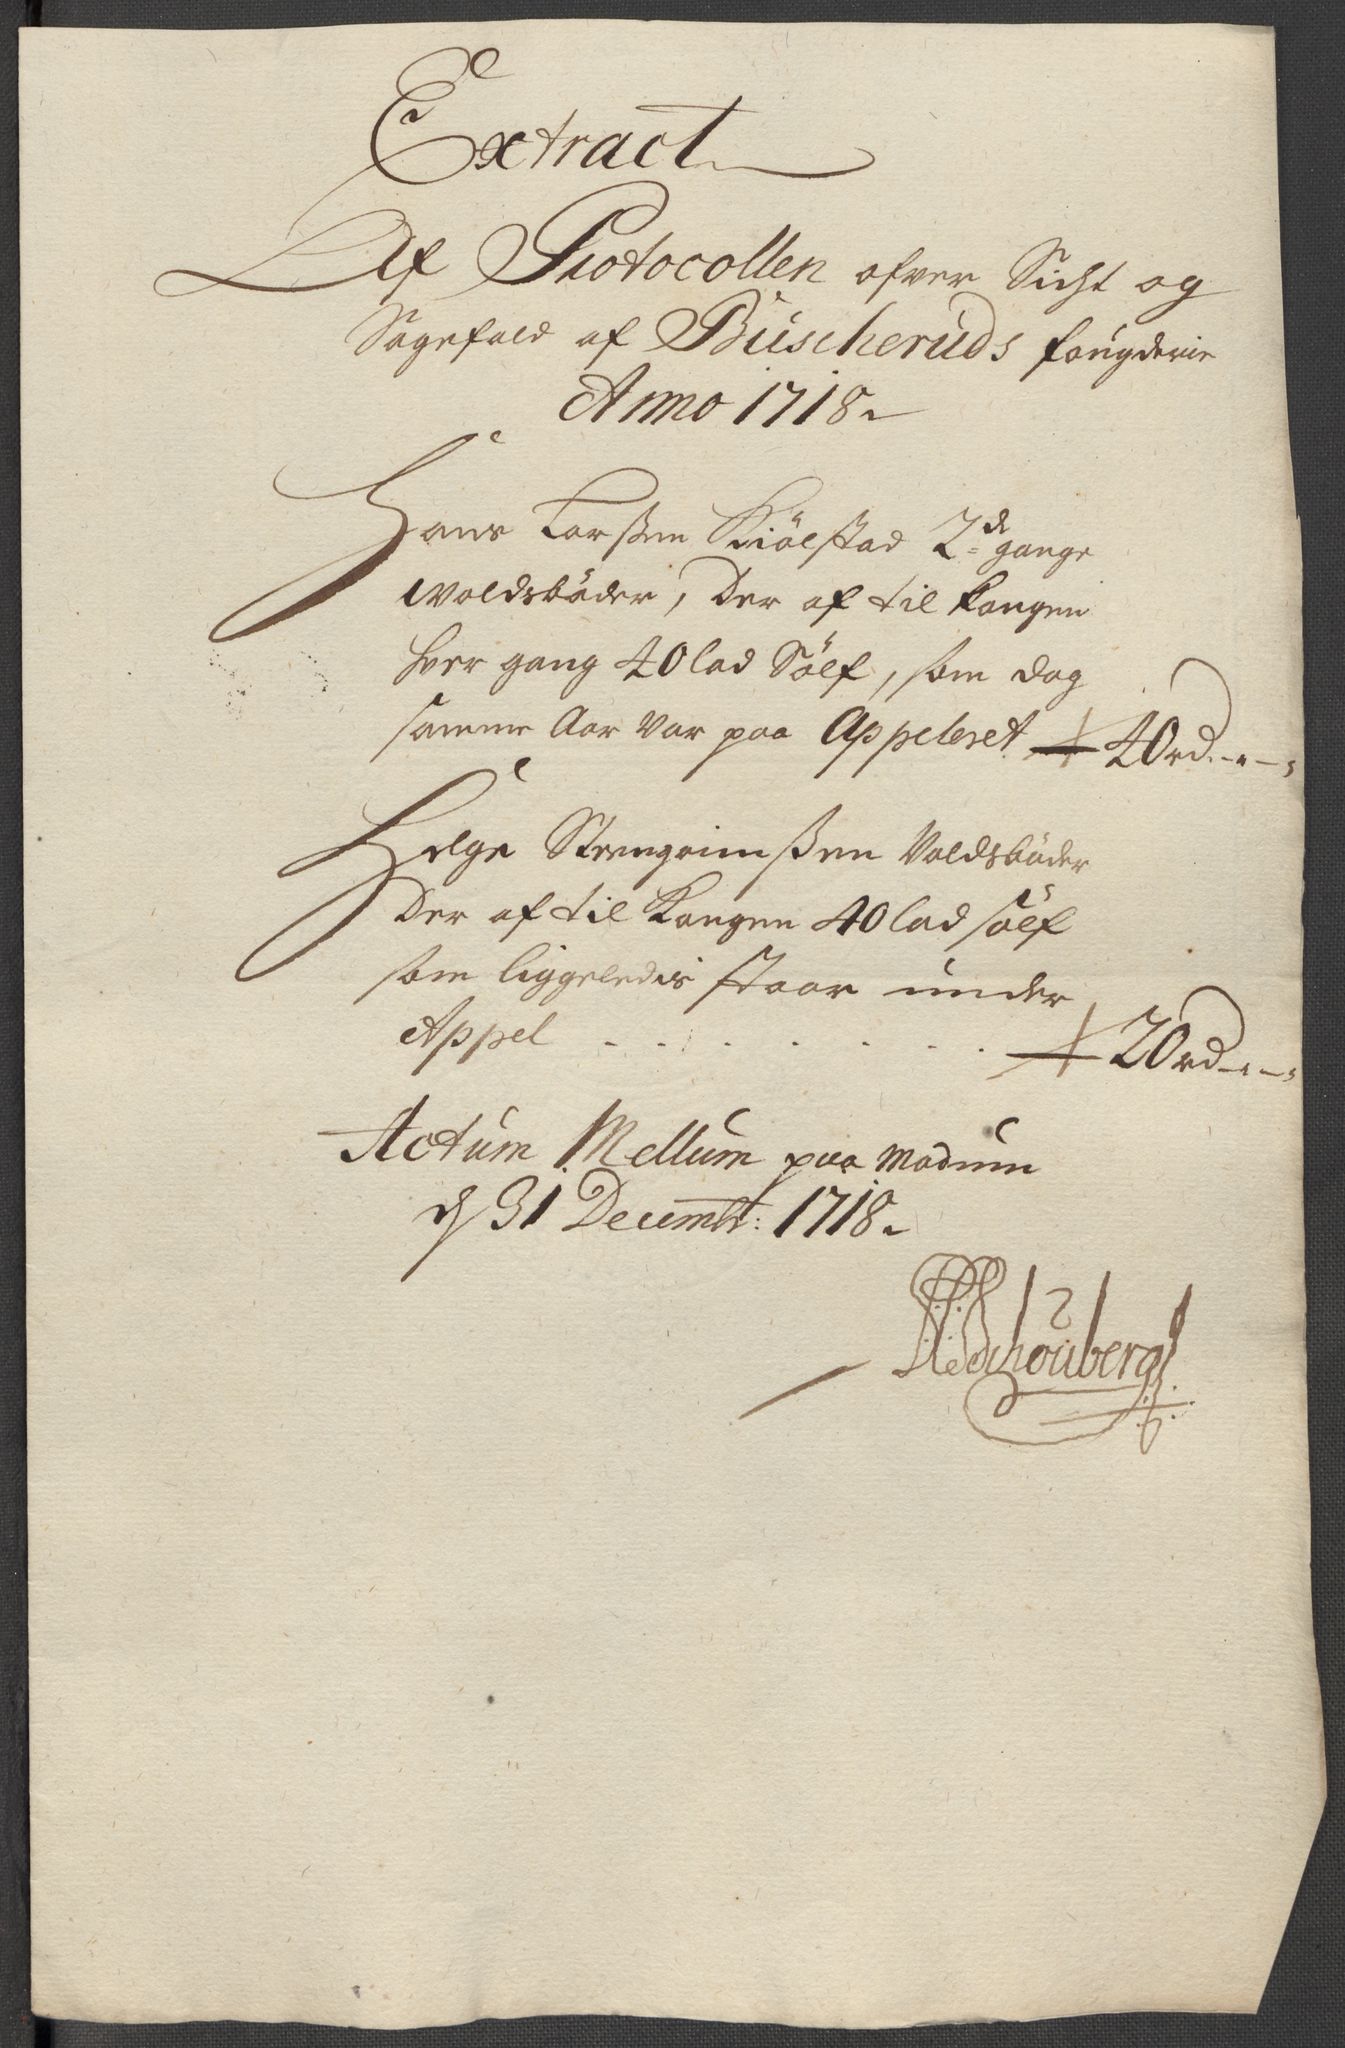 Extract
Af Protocollen ofver Sicht og
Sagefald af Büscheruds fougderie
Anno 1718
Hans Larsßen Kiölstad 2de gange
Woldsböder, Der af til Kongen
hver gang 40 lod Sölf, som dog
samme Aar var paa Appeleret 40 rd - " - "
Helge Steengrimsßen Voldsböder
Der af til Kongen 40 lod sölf
som liggeledis staar under
Appel . . . . . . . . 20 rd - " - "
Actum Mellum paa Modum
d 31 Decembr: 1718
Schouberg